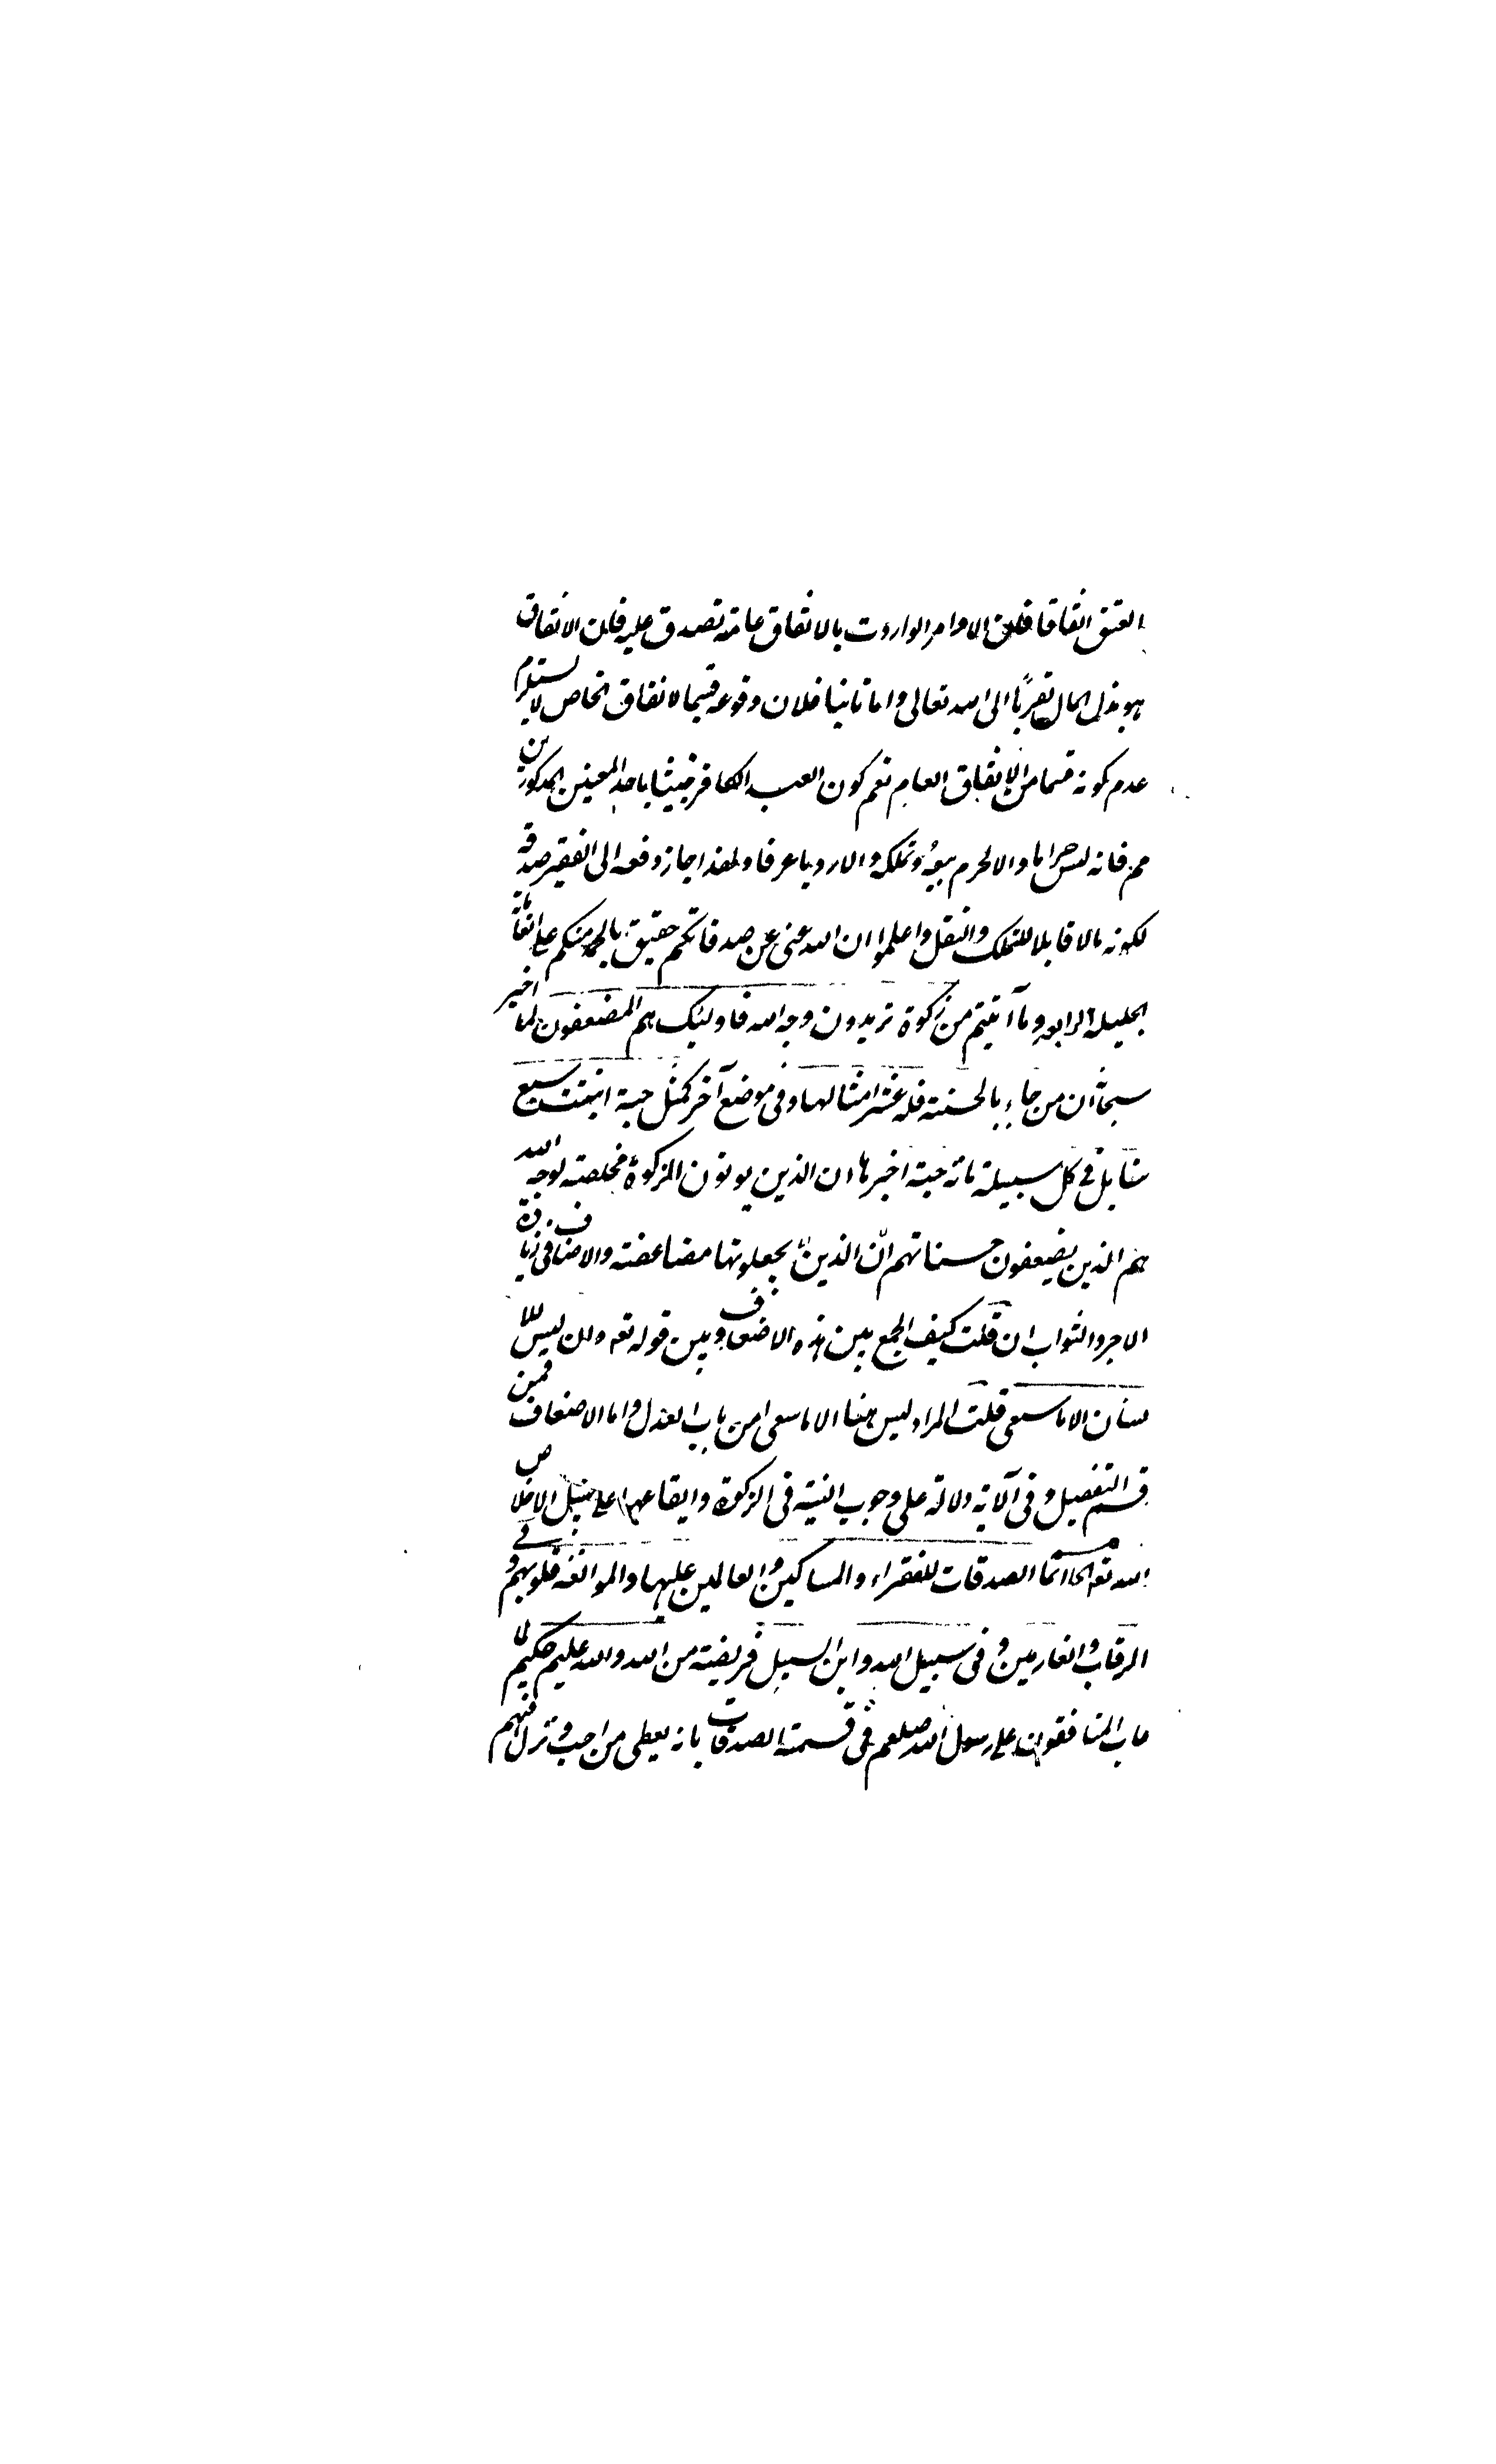 العتق انفاقا فلان الاوامر الواردت بالانفاق عامة تصدق عليه فلان الانفاق
هو بذل المال تقربًا الى الله تعالى واما ثانيا فلان وقوعه قسيما لانفاق الخاص لا يستلزم
عدم كونه قسما من الانفاق العام نعم كون العبد الكافر خبيثا باحد المعنيين المذكورين
مم فانه ليس حراما والا لحرم بيعه وتملكه ولا رديا عرفا ولهذا جاز دفعه الى الفقير صدقة
لكونه مالا قابلا للتملك والنقل واعلموا ان الله غنى عن صدقاتكم حقيق بالحمد منكم على انعامه
الجليلة الرابعة وما آتيتم من زكوة تريدون وجه الله فاولئك هم المضعفون لما اخبر
سبحانه ان من جاء بالحسنة فله عشر امثالها وفى موضع آخر كمثل حبة انبتت سبع
سنابل فى كل سنبلة مائة حبة اخبر هنا ان الذين يوتون الزكوة مخلصة لوجه الله
هم الذين يضعفون حسناتهم اى الذين يجعلونها مضاعفة والاضعاف زيادة
الاجر والثواب ان قلت كيف الجمع بين هذه الاضعاف وبين قوله تعه وان ليس للا
نسان الا ما سعى قلت المراد ليس هنا الا ما سعى من باب العدل واما الاضعاف فمن
قسم التفضيل وفى الآية دلالة على وجوب النية فى الزكوة وايقاعها على سبيل الاخلاص
انما الصدقات للفقراء والمساكين والعاملين عليها والموالفة قلوبهم وفى
الرقاب والغارمين وفى سبيل الله وابن السبيل فريضة من الله والله عليم حكيم لما
عاب المنافقون على رسول الله صلعم فى قسمة الصدقات بانه يعطى من احب